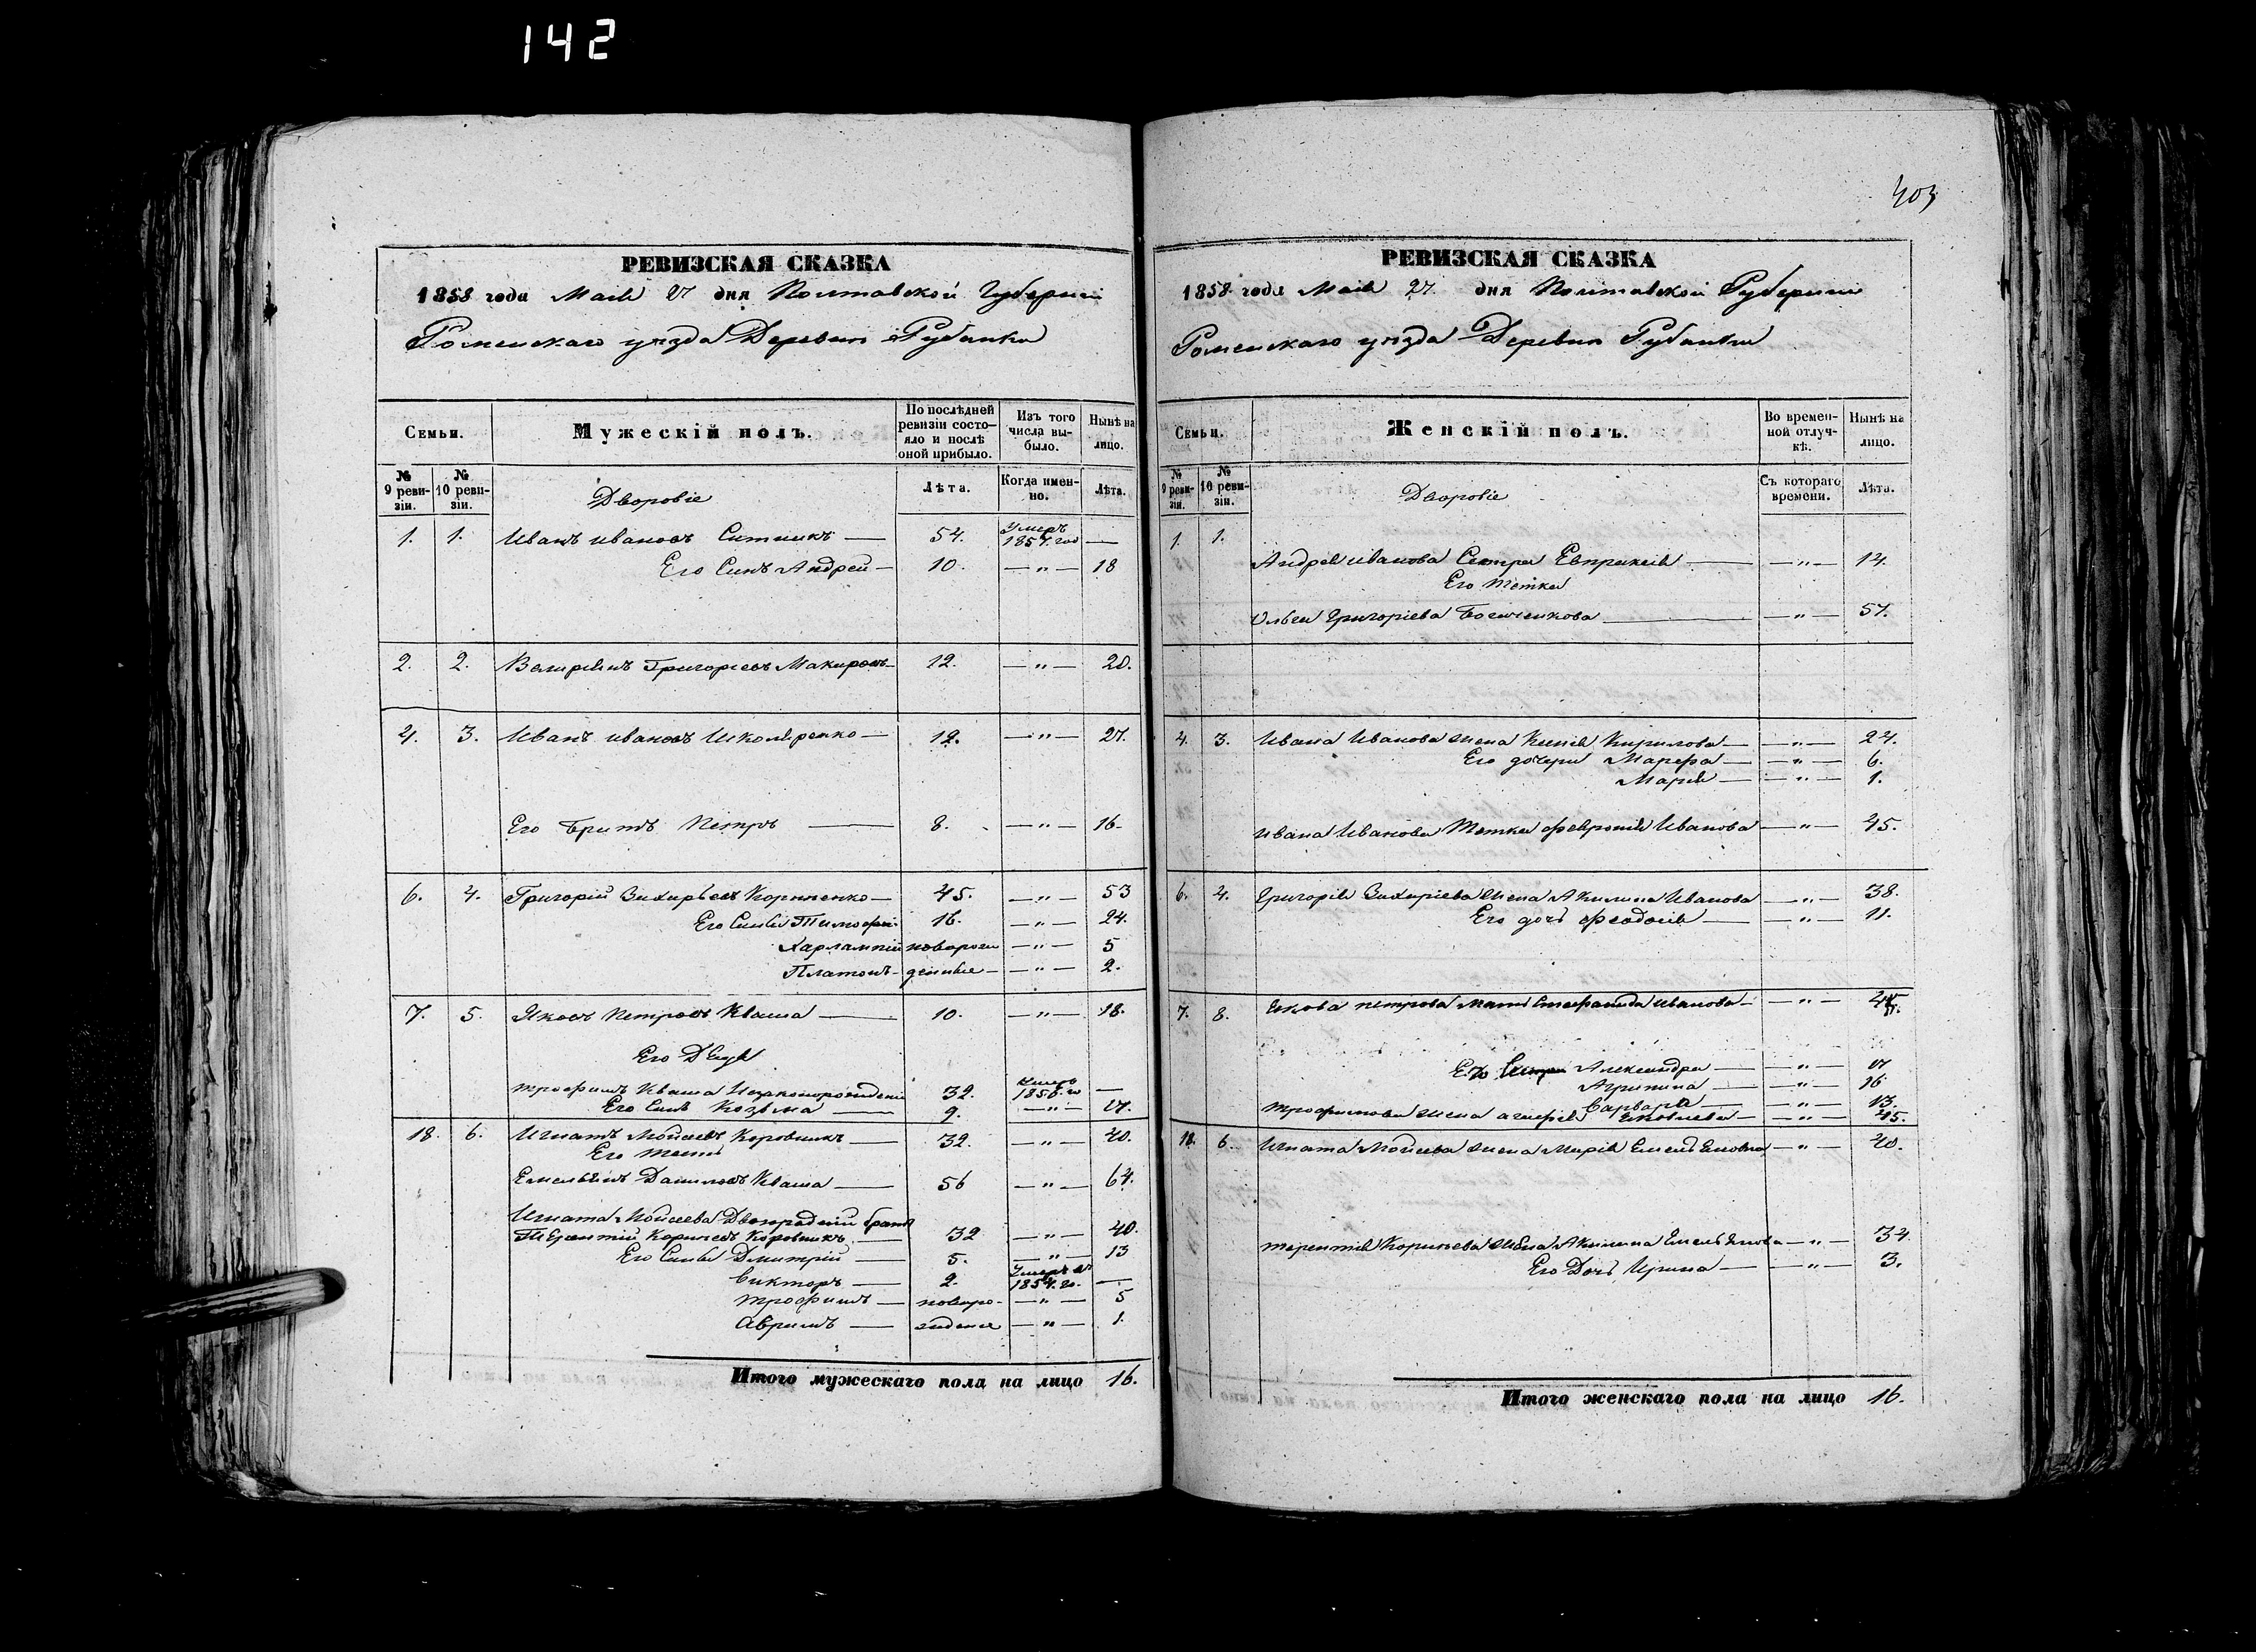 142
РЕВИЗСКАЯ СКАЗКА
1858 года Мая 27 дня Полтавской Губерніи
Роменскаго уѣзда Деревни Рубанки
Семьи.
Мужескій полъ.
По послѣдней ревизіи состояло и послѣ оной прибыло.
Изъ того числа выбыло.
Нынѣ на лицо.
№ 9 ревизіи.
№ 10 ревизіи.
Дворовіе
Лѣта.
Когда именно.
Лѣта.
1. 1. Иванъ Ивановъ Ситникъ — 54. Умеръ 1857. год —
Его Синъ Андрей — 10. — " — 18
2. 2. Григорьевъ — 12. — " — 20.
4. 3. Иванъ Ивановъ Школяренко — 19. — " — 27.
Его Братъ Петръ — 8. — " — 16.
6. 4. Григорій Захарьевъ — 45. — " — 53
Его Сины Тимофей 16. — " — 24.
Харлампій новорож — " — 5
Платонъ — денные — — " — 2.
7. 5. Яковъ Петровъ Кваша — 10. — " — 18.
Его Дядя
Трофимъ Кваша 32. Умеръ 1856. го —
Его Синъ Козьма — 9. — " — 17.
18. 6. Игнатъ Мойсеевъ Коровникъ — 32. — " — 40.
Его тесть
Емельянъ Даниловъ Кваша — 56 — " — 64.
Игната Мойсеева Двоюродній братъ
Терентій Корнѣевъ Коровникъ — 32 — " — 40.
Его Сины Дмитрій — 5. — " — 13
Викторъ — 2. Умеръ въ 1854. го. —
Трофимъ — новоро- — " — 5
Аврамъ — жденые — " — 1.
Итого мужескаго пола на лицо 16.
403
РЕВИЗСКАЯ СКАЗКА
1858 года Мая 27. дня Полтавской Губерніи
Роменскаго уѣзда Деревни Рубанки
Семьи.
Женскій полъ.
Во временной отлучкѣ.
Нынѣ на лицо.
№ 9 ревизіи.
№ 10 ревизіи.
Дворовіе
Съ котораго времени.
Лѣта.
1. 1.
Андрея Иванова Сестра Евпраксія — — " — 14.
Его тетка
Ольга Григоріева — — " — 57.
4. 3. Ивана Иванова жена Ксенія Кирилова — — " — 24.
Его дочери Марфа — — " — 6.
Марія — — " — 1.
Ивана Иванова тетка Февронія Иванова — " — 45.
6. 4. Григорія Захаріева жена Акилина Иванова — " — 38.
Его дочь Феодосія — — " — 11.
7. 8. Якова Петрова мать Стефанида Иванова — — " —
Его Сестри Александра — — " — 17
Агрипина — — " — 16
Варвара — — " — 13.
Трофимова жена Агафія Яковлева — — " — 45.
18. 6. Игната Мойсеева жена Марія Емельянова — " — 40.
Терентія Корнѣева жена Акилина Емельянова — " — 34.
Его Дочь Ирина — — " — 3.
Итого женскаго пола на лицо 16.